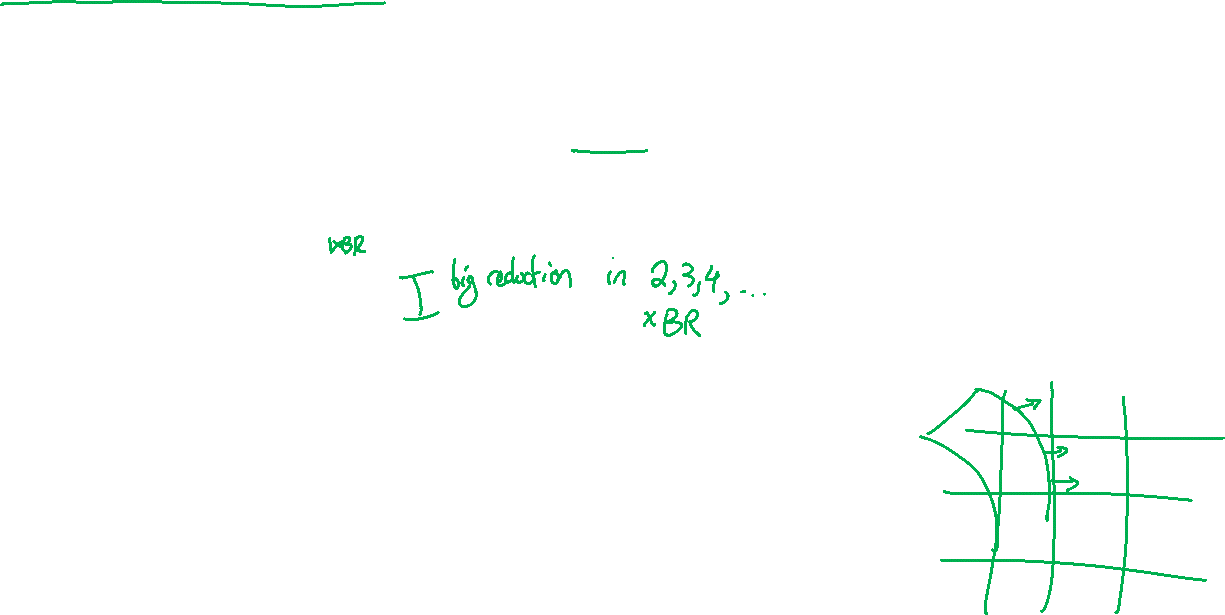 1xBR
I big reduction in 2,3,4,...
xBR